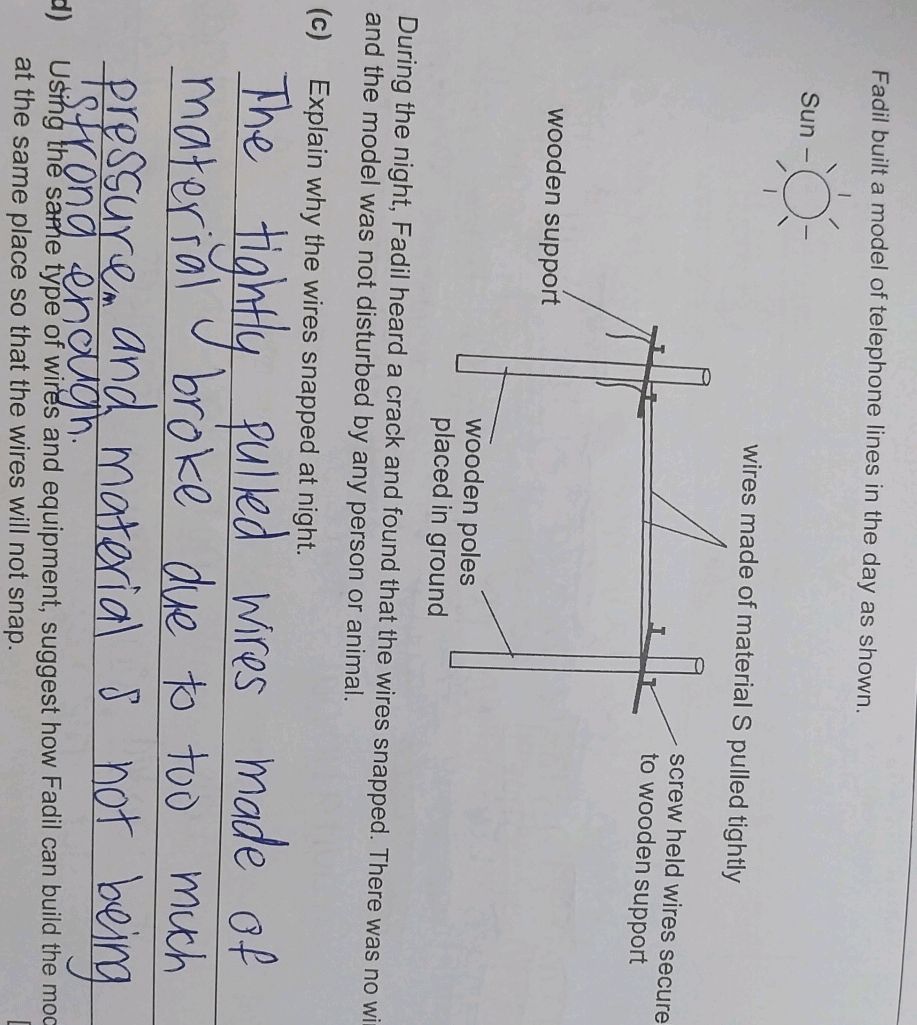 Fadil built a model of telephone lines in the day as shown.
Sun
wires made of material S pulled tightly
screw held wires secure
to wooden support
wooden support
wooden poles
placed in ground
During the night, Fadil heard a crack and found that the wires snapped. There was no wi
and the model was not disturbed by any person or animal.
(c) Explain why the wires snapped at night.
The tightly pulled wires made of
material S broke due to too much
pressure and material S not being
strong enough.
d) Using the same type of wires and equipment, suggest how Fadil can build the mod
at the same place so that the wires will not snap.
[